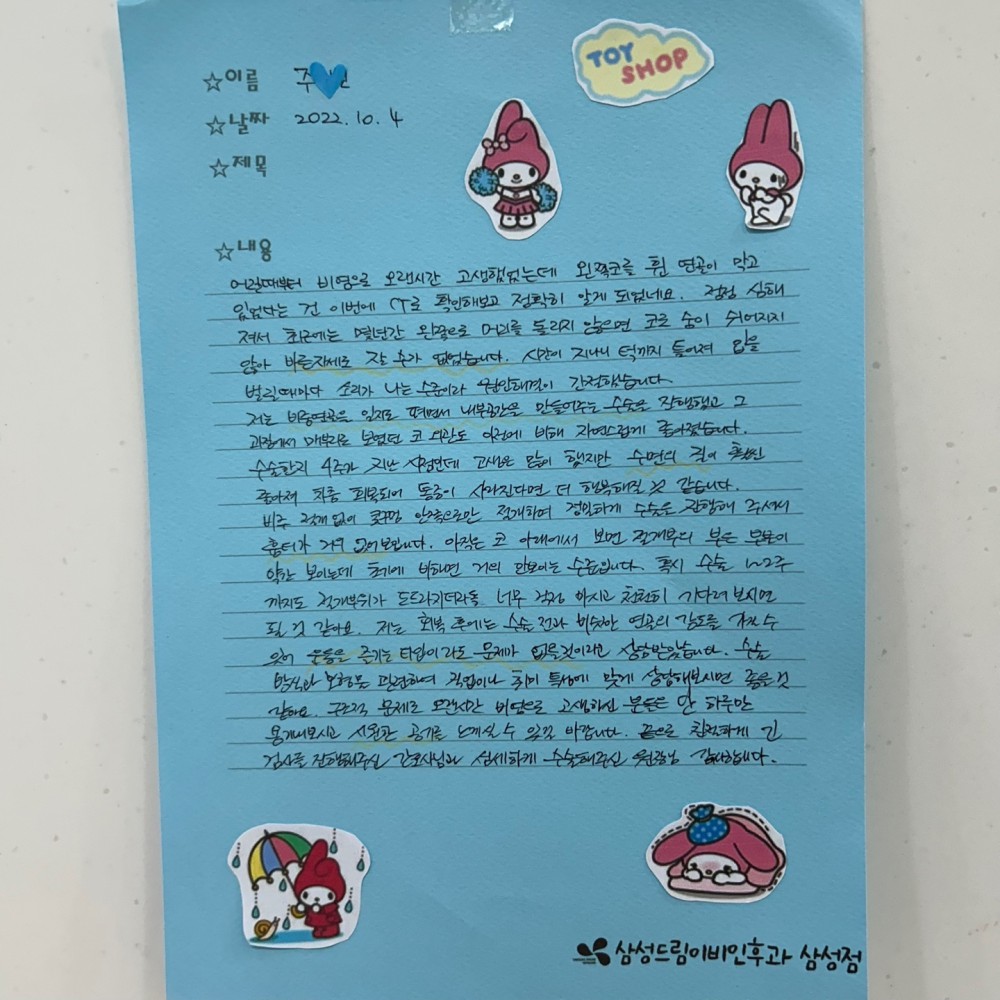 TOY
SHOP
☆이름 주
☆날짜 2022. 10. 4
☆제목
☆내용
어릴때부터 비염으로 오랜시간 고생했었는데 왼쪽코를 휜 연골이 막고
있었다는 건 이번에 CT로 확인해보고 정확히 알게 되었네요. 점점 심해
져서 최근에는 몇년간 왼쪽으로 머리를 돌리지 않으면 코로 숨이 쉬어지지
않아 바른자세로 잘 수가 없었습니다. 시간이 지나니 턱까지 틀어져 입을
벌릴때마다 소리가 나는 수준이라 원인해결이 간절했습니다.
저는 비중격연골을 일자로 펴면서 내부공간을 만들어주는 수술을 진행했고 그
과정에서 매부리로 보였던 코 외관도 이전에 비해 자연스럽게 좋아졌습니다.
수술한지 4주가 지난 시점인데 고생은 많이 했지만 수면의 질이 훨씬
좋아져 차츰 회복되어 통증이 사라진다면 더 행복해질 것 같습니다.
비주 절개 없이 콧구멍 안쪽으로만 절개하여 정밀하게 수술을 진행해 주셔서
흉터가 거의 없어보입니다. 아직은 코 아래에서 보면 절개부의 부은 부분이
약간 보이는데 초기에 비하면 거의 안보이는 수준입니다. 혹시 수술 1~2주
까지도 절개부위가 도드라지더라도 너무 걱정 마시고 천천히 기다려 보시면
될 것 같아요. 저는 회복 후에는 수술 전과 비슷한 연골의 강도를 가질 수
있어 운동을 즐기는 타입이라도 문제가 없을것이라고 상담받았습니다. 수술
방식과 모양을 관련하여 직업이나 취미 특성에 맞게 상담해보시면 좋을것
같아요. 구조적 문제로 오랜시간 비염으로 고생하신 분들은 단 하루만
용기내보시고 시원한 공기를 느끼실 수 있길 바랍니다. 끝으로 친절하게 긴
검사를 진행해주신 간호사님과 섬세하게 수술해주신 원장님 감사합니다.
삼성드림이비인후과 삼성점